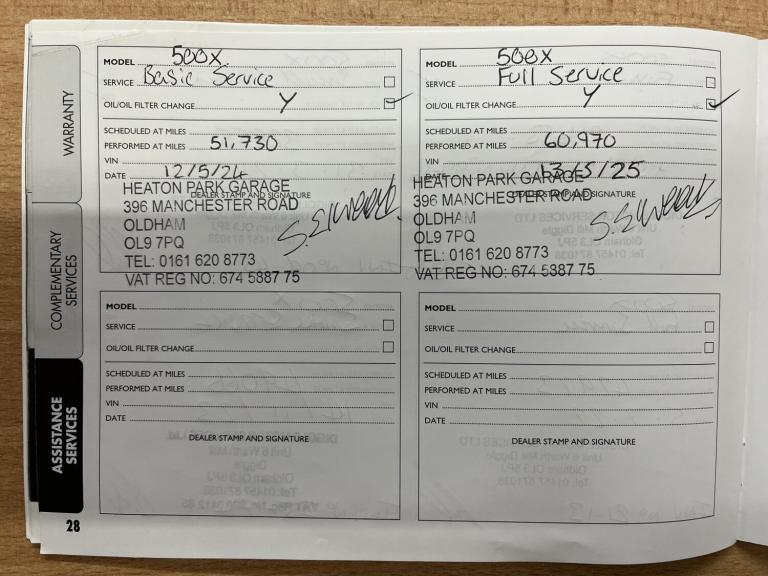 WARRANTY
COMPLEMENTARY
SERVICES
ASSISTANCE
SERVICES
MODEL 500X
SERVICE Basic Service
OIL/OIL FILTER CHANGE Y
SCHEDULED AT MILES
PERFORMED AT MILES 51,730
VIN
DATE 12/5/24
DEALER STAMP AND SIGNATURE
HEATON PARK GARAGE
396 MANCHESTER ROAD
OLDHAM
OL9 7PQ
TEL: 0161 620 8773
VAT REG NO: 674 5887 75
MODEL 500X
SERVICE Full Service
OIL/OIL FILTER CHANGE Y
SCHEDULED AT MILES
PERFORMED AT MILES 60,970
VIN
DATE 13/5/25
DEALER STAMP AND SIGNATURE
HEATON PARK GARAGE
396 MANCHESTER ROAD
OLDHAM
OL9 7PQ
TEL: 0161 620 8773
VAT REG NO: 674 5887 75
MODEL
SERVICE
OIL/OIL FILTER CHANGE
SCHEDULED AT MILES
PERFORMED AT MILES
VIN
DATE
DEALER STAMP AND SIGNATURE
MODEL
SERVICE
OIL/OIL FILTER CHANGE
SCHEDULED AT MILES
PERFORMED AT MILES
VIN
DATE
DEALER STAMP AND SIGNATURE
28